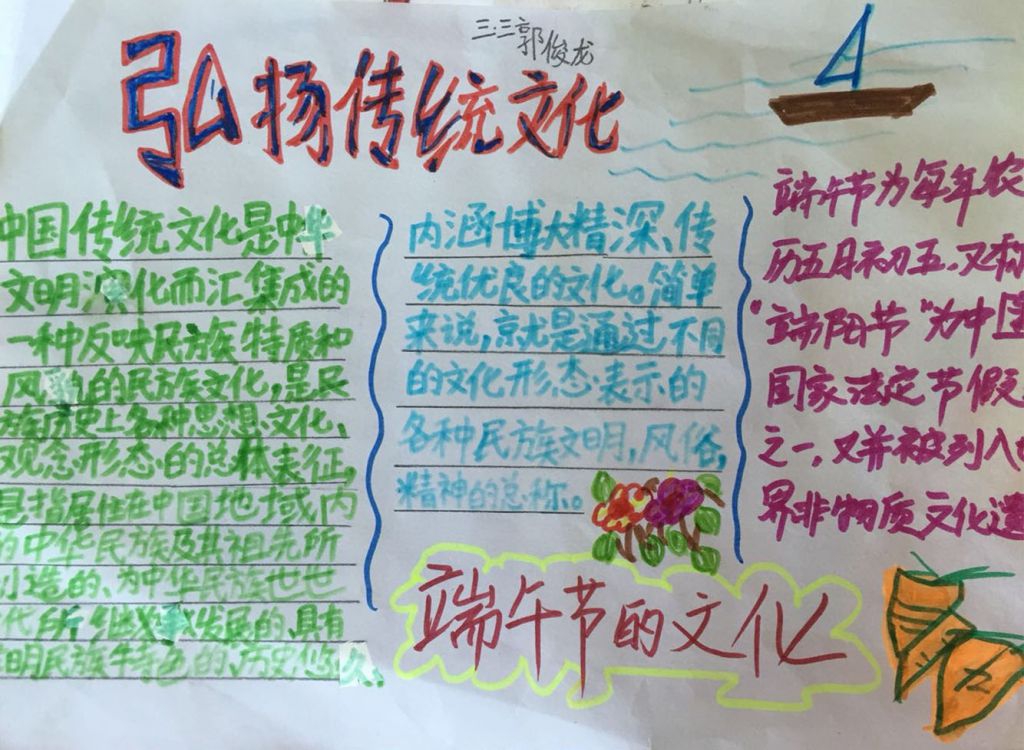 三.三郭俊龙
弘扬传统文化
中国传统文化是中华
文明演化而汇集成的
一种反映民族特质和
风貌的民族文化,是民
族历史上各种思想文化、
观念形态的总体表征,
是指居住在中国地域内
的中华民族及其祖先所
创造的、为中华民族世世
代所继承发展的,具有
鲜明民族特色的、历史悠久
内涵博大精深、传
统优良的文化。简单
来说,就是通过不同
的文化形态表示的
各种民族文明,风俗,
精神的总称。
端午节为每年农
历五月初五,又称
"端阳节"为中国
国家法定节假
之一,又并被列入
界非物质文化遗
端午节的文化